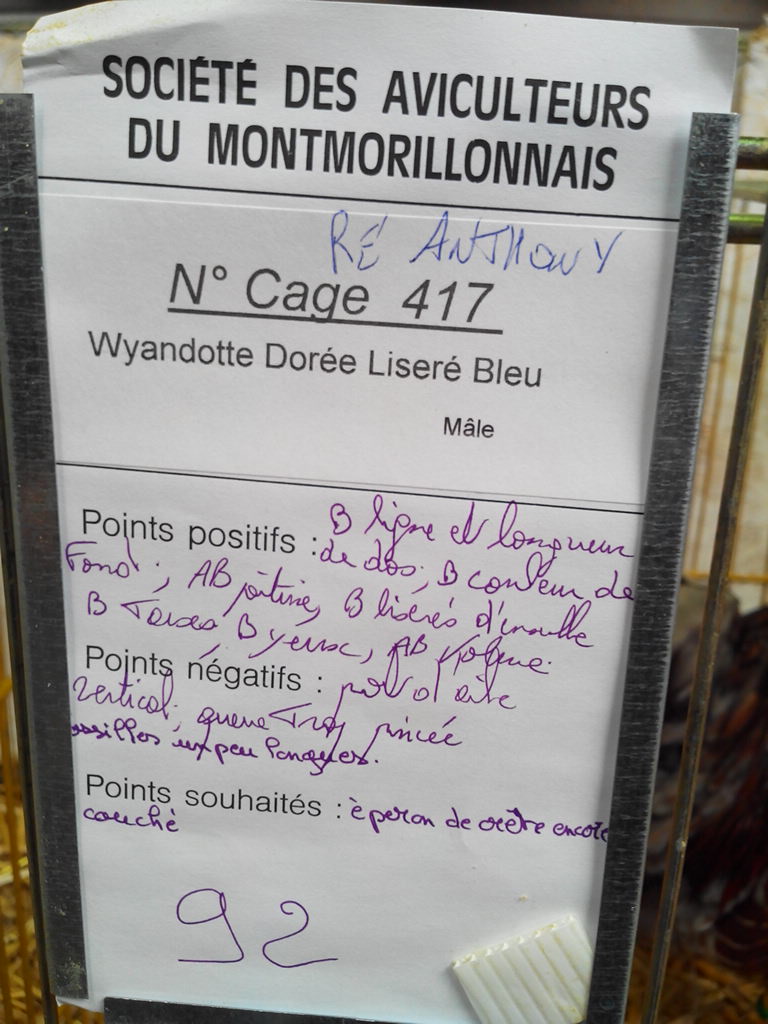 SOCIÉTÉ DES AVICULTEURS
DU MONTMORILLONNAIS
RÉ ANTHONY
N° Cage 417
Wyandotte Dorée Liseré Bleu
Mâle
Points positifs : B ligne et longueur
de dos; B couleur de
Fond; AB poitrine, B liserés d'ensemble
B Tarses, B yeux, AB
Points négatifs : port d'aile
vertical; queue Trop pincée
un peu longues.
Points souhaités : éperon de crête encore
couché
92